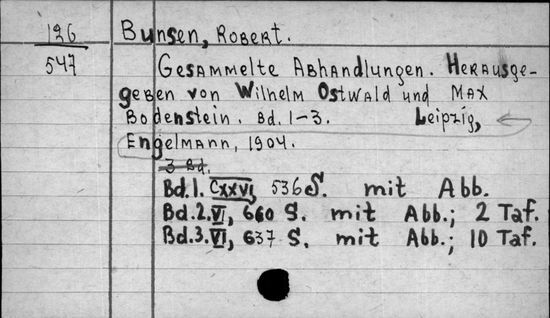 126
547
Bunsen, Robert.
Gesammelte Abhandlungen. Herausge-
geben von Wilhelm Ostwald und Max
Bodenstein. Bd. 1-3. Leipzig,
Engelmann, 1904.
3 Bd.
Bd.1. CXXVI, 536 S. mit Abb.
Bd.2. VI, 660 S. mit Abb.; 2 Taf.
Bd.3. VI, 637 S. mit Abb.; 10 Taf.